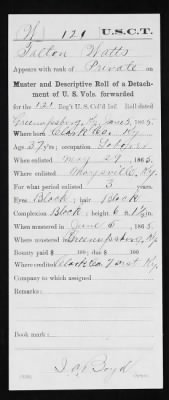 (W) 121 U.S.C.T.
Falton Watts
Appears with rank of Private on
Muster and Descriptive Roll of a Detach-
ment of U. S. Vols. forwarded
for the 121 Reg't U.S. Col'd Inf. Roll dated
Greenupsburg, Ky June 5, 1865.
Where born Clark Co. Ky.
Age 37 y'rs; occupation Laborer
When enlisted May 29, 1865.
Where enlisted Maysville, Ky.
For what period enlisted 3 years.
Eyes Black; hair Black
Complexion Black; height 6 ft. 1½ in.
When mustered in June 5, 1865.
Where mustered in Greenupsburg, Ky
Bounty paid $ 100; due $ 100
Where credited Clark Co. 7 Dist Ky.
Company to which assigned
Remarks:
Book mark:
Boyd